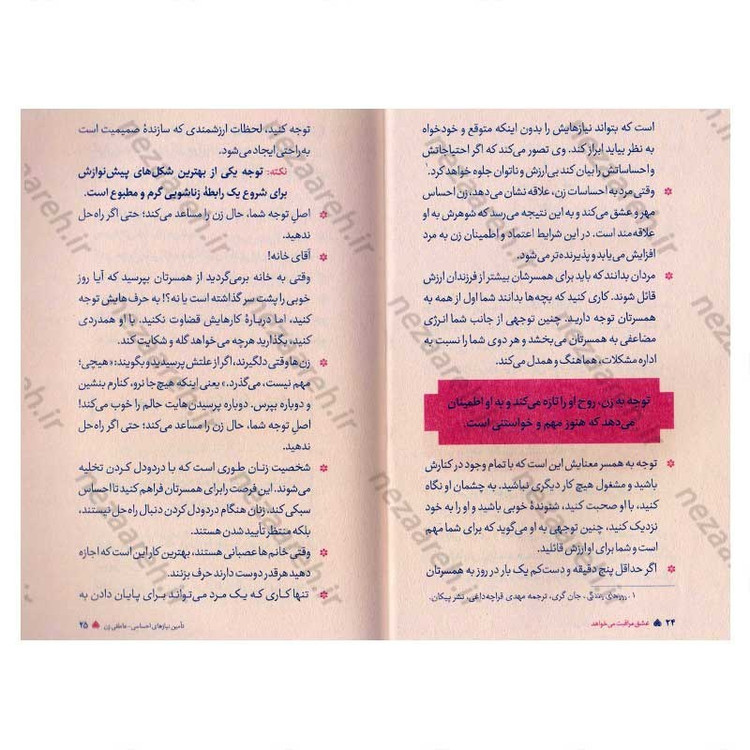 است که بتواند نیازهایش را بدون اینکه متوقع و خودخواه
به نظر بیاید ابراز کند. وی تصور می‌کند که اگر احتیاجاتش
و احساساتش را بیان کند بی‌ارزش و ناتوان جلوه خواهد کرد.¹
وقتی مرد به احساسات زن، علاقه نشان می‌دهد، زن احساس
مهر و عشق می‌کند و به این نتیجه می‌رسد که شوهرش به او
علاقه‌مند است. در این شرایط اعتماد و اطمینان زن به مرد
افزایش می‌یابد و پذیرنده‌تر می‌شود.
مردان بدانند که باید برای همسرشان بیشتر از فرزندان ارزش
قائل شوند. کاری کنید که بچه‌ها بدانند شما اول از همه به
همسرتان توجه دارید. چنین توجهی از جانب شما انرژی
مضاعفی به همسرتان می‌بخشد و هر دوی شما را نسبت به
اداره مشکلات، هماهنگ و همدل می‌کند.
توجه به زن، روح او را تازه می‌کند و به او اطمینان
می‌دهد که هنوز مهم و خواستنی است.
توجه به همسر معنایش این است که با تمام وجود در کنارش
باشید و مشغول هیچ کار دیگری نباشید. به چشمان او نگاه
کنید، با او صحبت کنید، شنوندهٔ خوبی باشید و او را به خود
نزدیک کنید، چنین توجهی به او می‌گوید که برای شما مهم
است و شما برای او ارزش قائلید.
اگر حداقل پنج دقیقه و دست‌کم یک بار در روز به همسرتان
۱. روزهای زندگی، جان گری، ترجمه مهدی قراچه‌داغی، نشر پیکان.
۲۴ عشق مراقبت می‌خواهد
توجه کنید، لحظات ارزشمندی که سازندهٔ صمیمیت است
به راحتی ایجاد می‌شود.
نکته: توجه یکی از بهترین شکل‌های پیش‌نوازش
برای شروع یک رابطهٔ زناشویی گرم و مطبوع است.
اصلِ توجه شما، حال زن را مساعد می‌کند؛ حتی اگر راه‌حل
ندهید.
آقای خانه!
وقتی به خانه برمی‌گردید از همسرتان بپرسید که آیا روز
خوبی را پشت سر گذاشته است یا نه؟! به حرف‌هایش توجه
کنید، اما دربارهٔ کارهایش قضاوت نکنید. با او همدردی
کنید، بگذارید هرچه می‌خواهد گله و شکایت کند.
زن‌ها وقتی دلگیرند، اگر از علتش پرسیدید و بگویند: «هیچی؛
مهم نیست، می‌گذرد.» یعنی اینکه هیچ‌جا نرو، کنارم بنشین
و دوباره بپرس. دوباره پرسیدن‌هایت حالم را خوب می‌کند!
اصلِ توجه شما، حال زن را مساعد می‌کند؛ حتی اگر راه‌حل
ندهید.
شخصیت زنان طوری است که با دردودل کردن تخلیه
می‌شوند. این فرصت را برای همسرتان فراهم کنید تا احساس
سبکی کند، زنان هنگام دردودل کردن دنبال راه‌حل نیستند،
بلکه منتظر تأیید شدن هستند.
وقتی خانم‌ها عصبانی هستند، بهترین کار این است که اجازه
دهید هر قدر دوست دارند حرف بزنند.
تنها کاری که یک مرد می‌تواند برای پایان دادن به
تأمین نیازهای احساسی-عاطفی زن ۲۵
nezaareh.ir